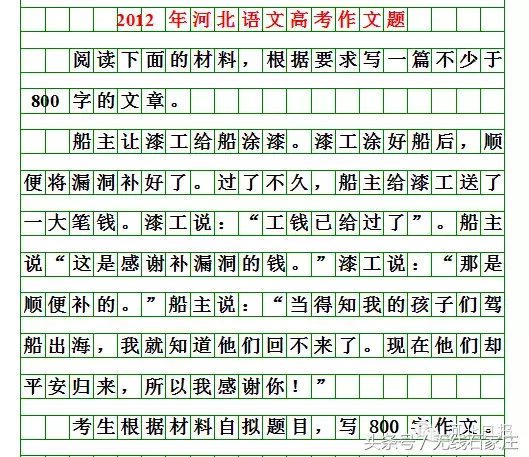 2012 年河北语文高考作文题
阅读下面的材料，根据要求写一篇不少于
800 字的文章。
船主让漆工给船涂漆。漆工涂好船后，顺
便将漏洞补好了。过了不久，船主给漆工送了
一大笔钱。漆工说：“工钱已给过了”。船主
说“这是感谢补漏洞的钱。”漆工说：“那是
顺便补的。”船主说：“当得知我的孩子们驾
船出海，我就知道他们回不来了。现在他们却
平安归来，所以我感谢你！”
考生根据材料自拟题目，写 800 字作文。
头条号/无线石家庄